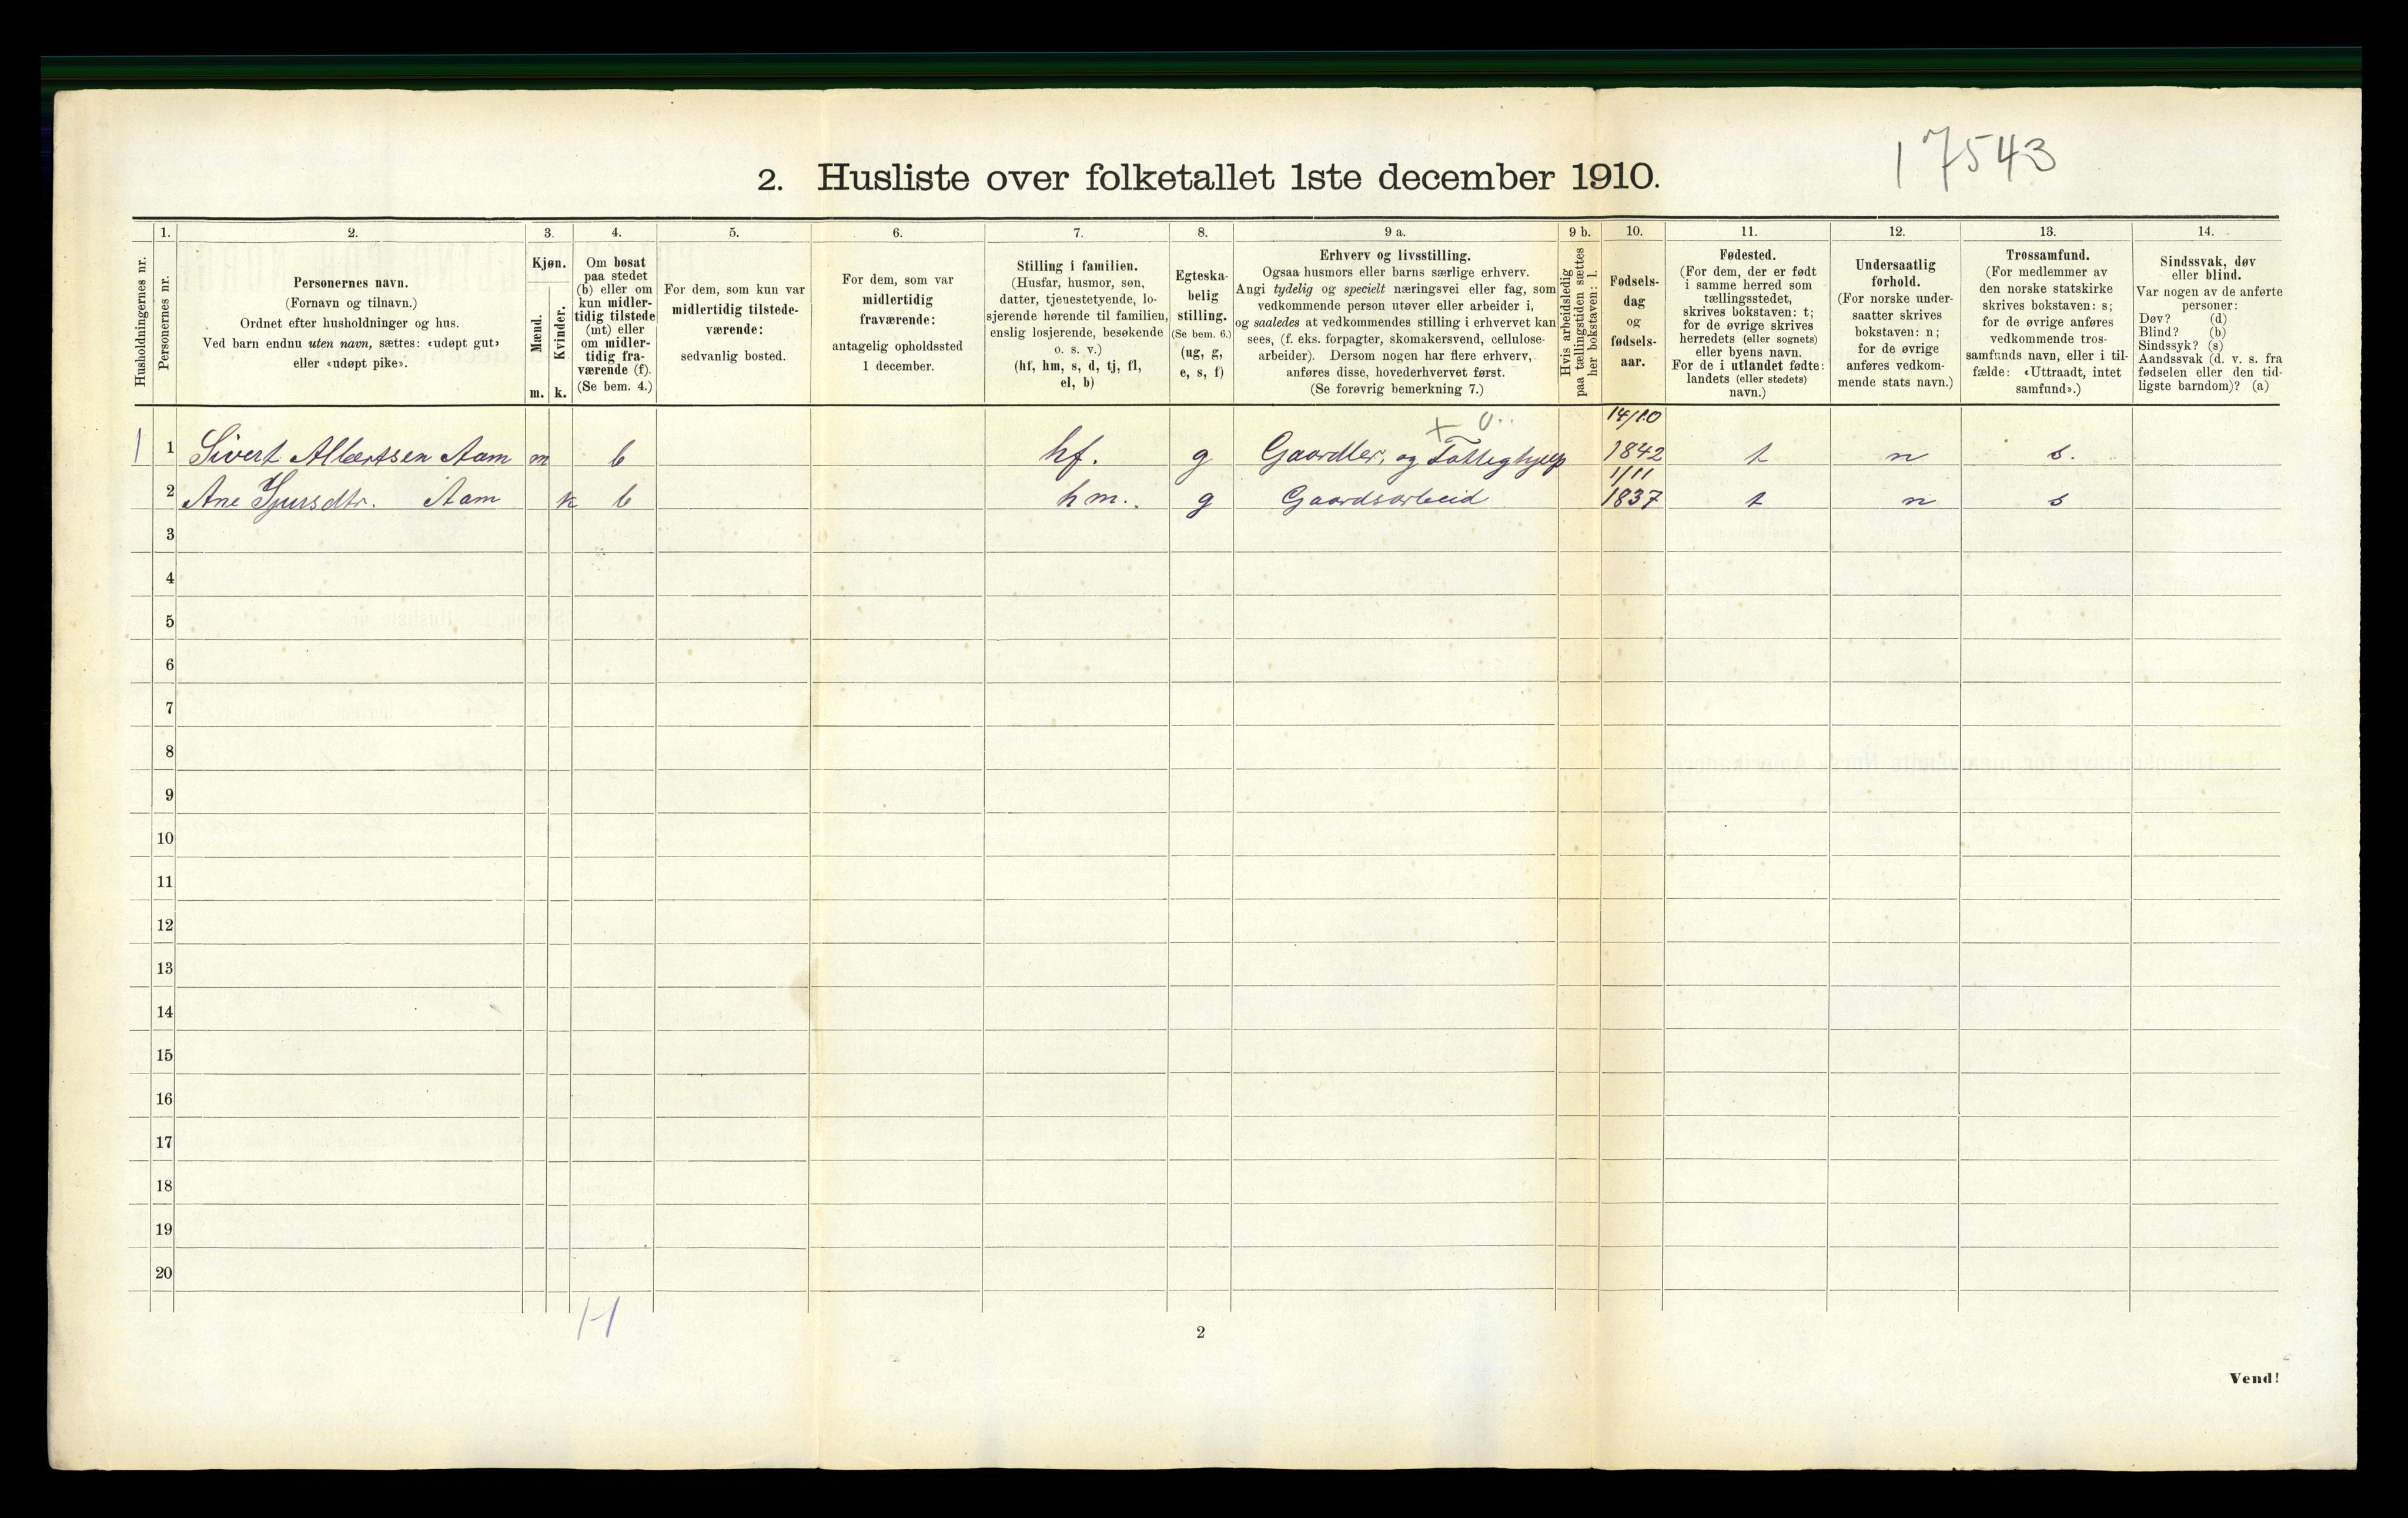 17543
2. Husliste over folketallet 1ste december 1910.
Husholdningernes nr.
1.
Personernes nr.
2.
Personernes navn.
(Fornavn og tilnavn.)
Ordnet efter husholdninger og hus.
Ved barn endnu uten navn, sættes: «udøpt gut»
eller «udøpt pike».
3.
Kjøn.
Mænd.
m.
Kvinder.
k.
4.
Om bosat
paa stedet
(b) eller om
kun midler-
tidig tilstede
(mt) eller
om midler-
tidig fra-
værende (f).
(Se bem. 4.)
5.
For dem, som kun var
midlertidig tilstede-
værende:
sedvanlig bosted.
6.
For dem, som var
midlertidig
fraværende:
antagelig opholdssted
1 december.
7.
Stilling i familien.
(Husfar, husmor, søn,
datter, tjenestetyende, lo-
sjerende hørende til familien,
enslig losjerende, besøkende
o. s. v.)
(hf, hm, s, d, tj, fl,
el, b)
8.
Egteska-
belig
stilling.
(Se bem. 6.)
(ug, g,
e, s, f)
9 a.
Erhverv og livsstilling.
Ogsaa husmors eller barns særlige erhverv.
Angi tydelig og specielt næringsvei eller fag, som
vedkommende person utøver eller arbeider i,
og saaledes at vedkommendes stilling i erhvervet kan
sees, (f. eks. forpagter, skomakersvend, cellulose-
arbeider). Dersom nogen har flere erhverv,
anføres disse, hovederhvervet først.
(Se forøvrig bemerkning 7.)
9 b.
Hvis arbeidsledig
paa tællingstiden sættes
her bokstaven: l.
10.
Fødsels-
dag
og
fødsels-
aar.
11.
Fødested.
(For dem, der er født
i samme herred som
tællingsstedet,
skrives bokstaven: t;
for de øvrige skrives
herredets (eller sognets)
eller byens navn.
For de i utlandet fødte:
landets (eller stedets)
navn.)
12.
Undersaatlig
forhold.
(For norske under-
saatter skrives
bokstaven: n;
for de øvrige
anføres vedkom-
mende stats navn.)
13.
Trossamfund.
(For medlemmer av
den norske statskirke
skrives bokstaven: s;
for de øvrige anføres
vedkommende tros-
samfunds navn, eller i til-
fælde: «Uttraadt, intet
samfund».)
14.
Sindssvak, døv
eller blind.
Var nogen av de anførte
personer:
Døv? (d)
Blind? (b)
Sindssyk? (s)
Aandssvak (d. v. s. fra
fødselen eller den tid-
ligste barndom)? (a)
+ 0.. 14/10
1 1 Sivert Albertsen Aam m b hf. g Gaardbr. og Fattighjelp 1842 t n s.
1/11
2 Ane Sjursdtr. Aam k b hm. g Gaardsarbeid 1837 t n s
3
4
5
6
7
8
9
10
11
12
13
14
15
16
17
18
19
20
1-1
2
Vend!